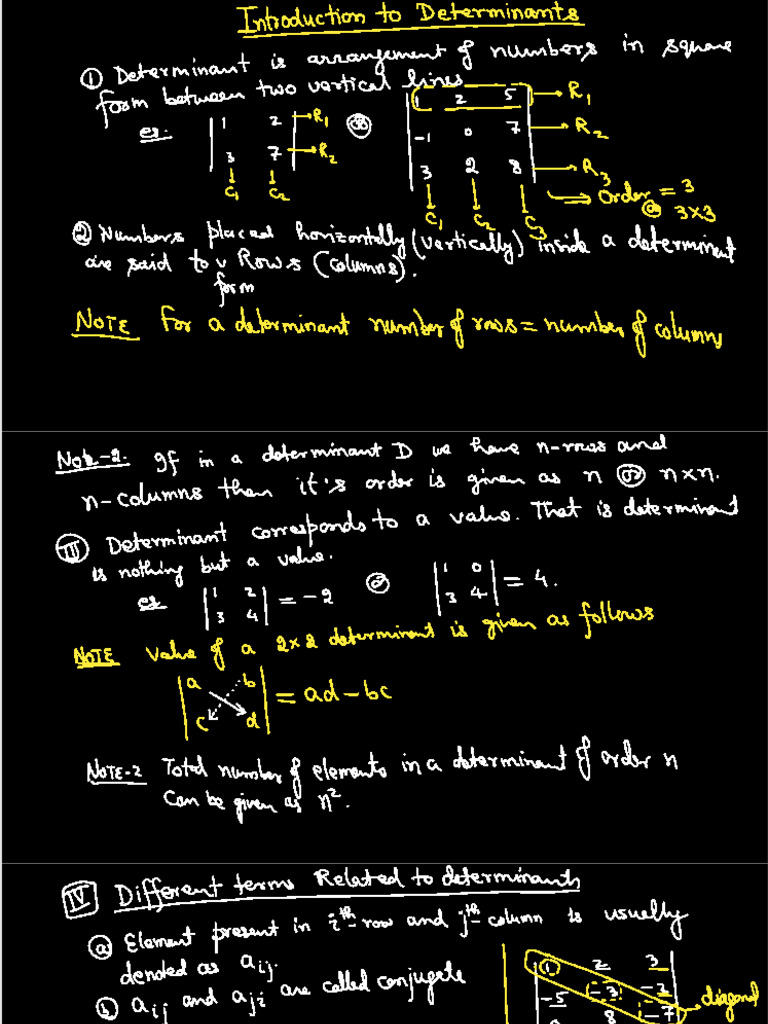 Introduction to Determinants
① Determinant is arrangement of numbers in square
form between two vertical lines
ex. | 1 2 | → R1 or | 1 2 5 | → R1
| 3 7 | → R2 | -1 0 7 | → R2
| 3 2 8 | → R3
C1 C2 C1 C2 C3 ⇒ Order = 3
or 3×3
② Numbers placed horizontally (vertically) inside a determinant
are said to form Rows (columns).
NOTE For a determinant number of rows = number of columns
Note-2. If in a determinant D we have n-rows and
n-columns then it's order is given as n or n×n.
III Determinant corresponds to a value. That is determinant
is nothing but a value.
ex | 1 2 | = -2 or | 1 0 | = 4.
| 3 4 | | 3 4 |
NOTE Value of a 2×2 determinant is given as follows
| a b | = ad-bc
| c d |
NOTE-2 Total number of elements in a determinant of order n
can be given as n².
IV Different terms Related to determinants
ⓐ Element present in ith-row and jth-column is usually
denoted as aij.
ⓑ aij and aji are called conjugate
| 1 2 3 |
-5 -3 -2
8 -7 → diagonal